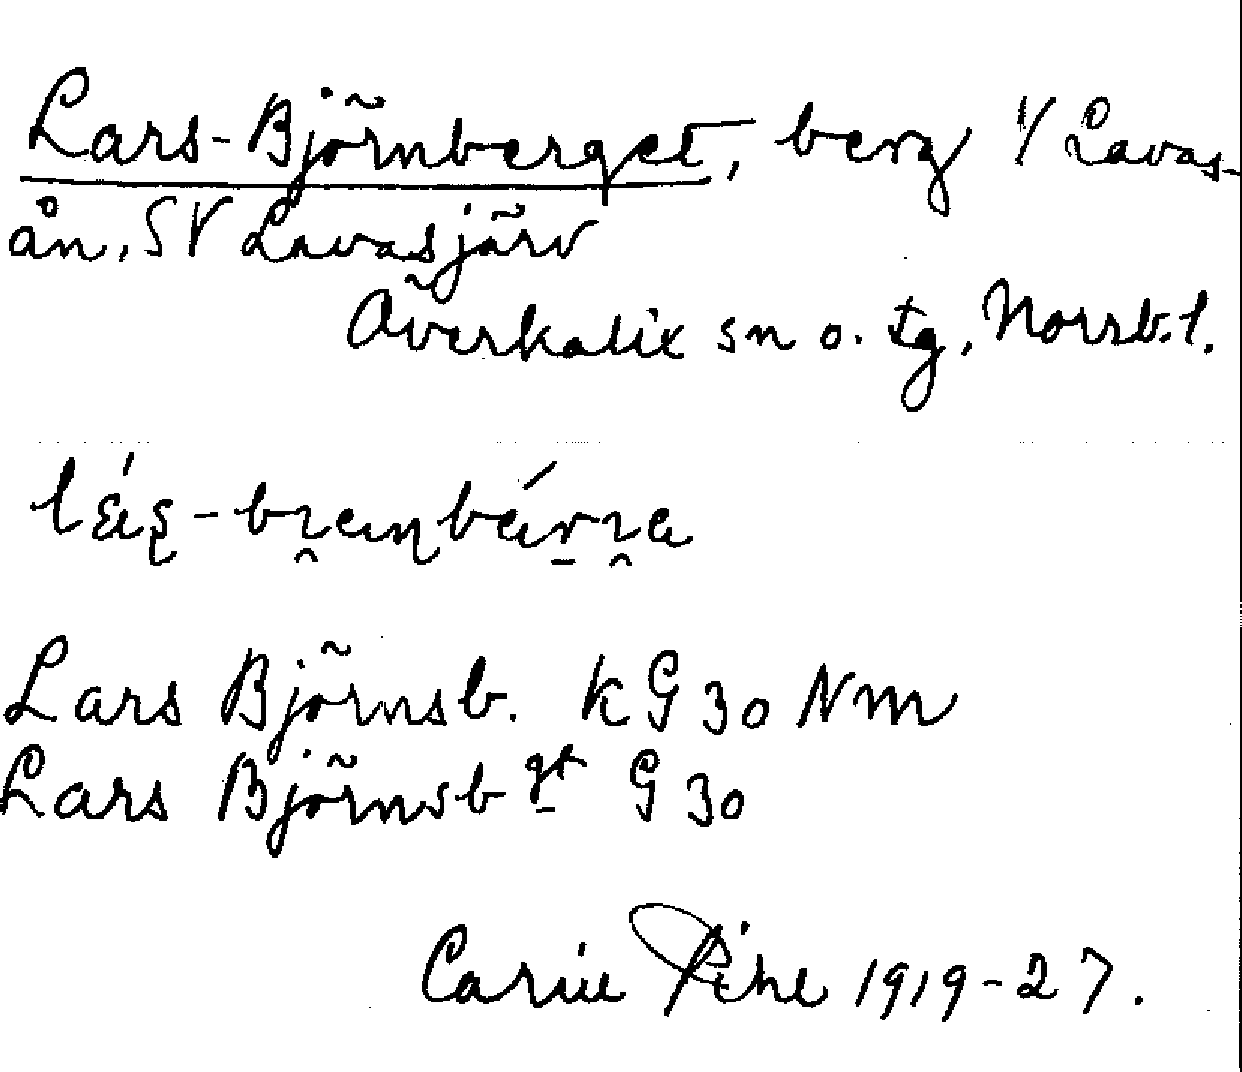 Lars-Björnberget, berg 1/ Lavas-
ån, SV Lavasjärv
Överkalix sn o. tg, Norrb. l.
Lars Björnsb. KG 30 Nm
Lars Björnsbgt G 30
Carin Pihl 1919-27.